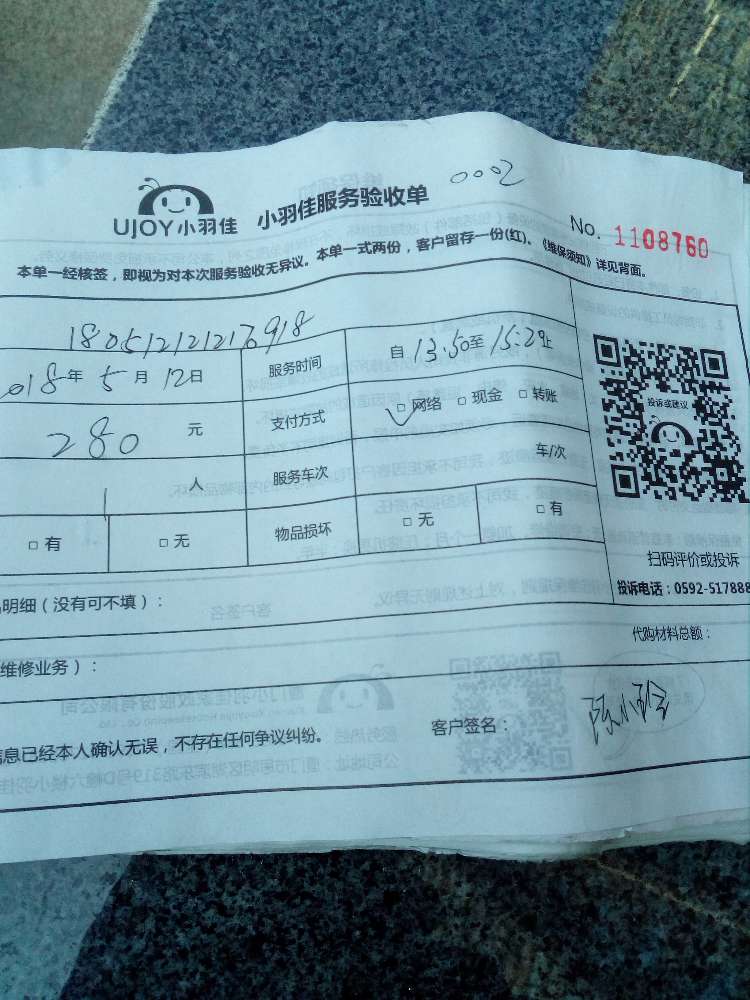 0002
UJOY小羽佳 小羽佳服务验收单
No. 1108760
本单一经核签，即视为对本次服务验收无异议。本单一式两份，客户留存一份(红)。《维保须知》详见背面。
018年5月12日 服务时间 自13:50至15:29止
280元 支付方式 □网络 □现金 □转账
1人 服务车次 车/次
□有 □无 物品损坏 □无 □有
投诉或建议
扫码评价或投诉
投诉电话：0592-517888
明细（没有可不填）：
代购材料总额：
维修业务）：
信息已经本人确认无误，不存在任何争议纠纷。 客户签名：